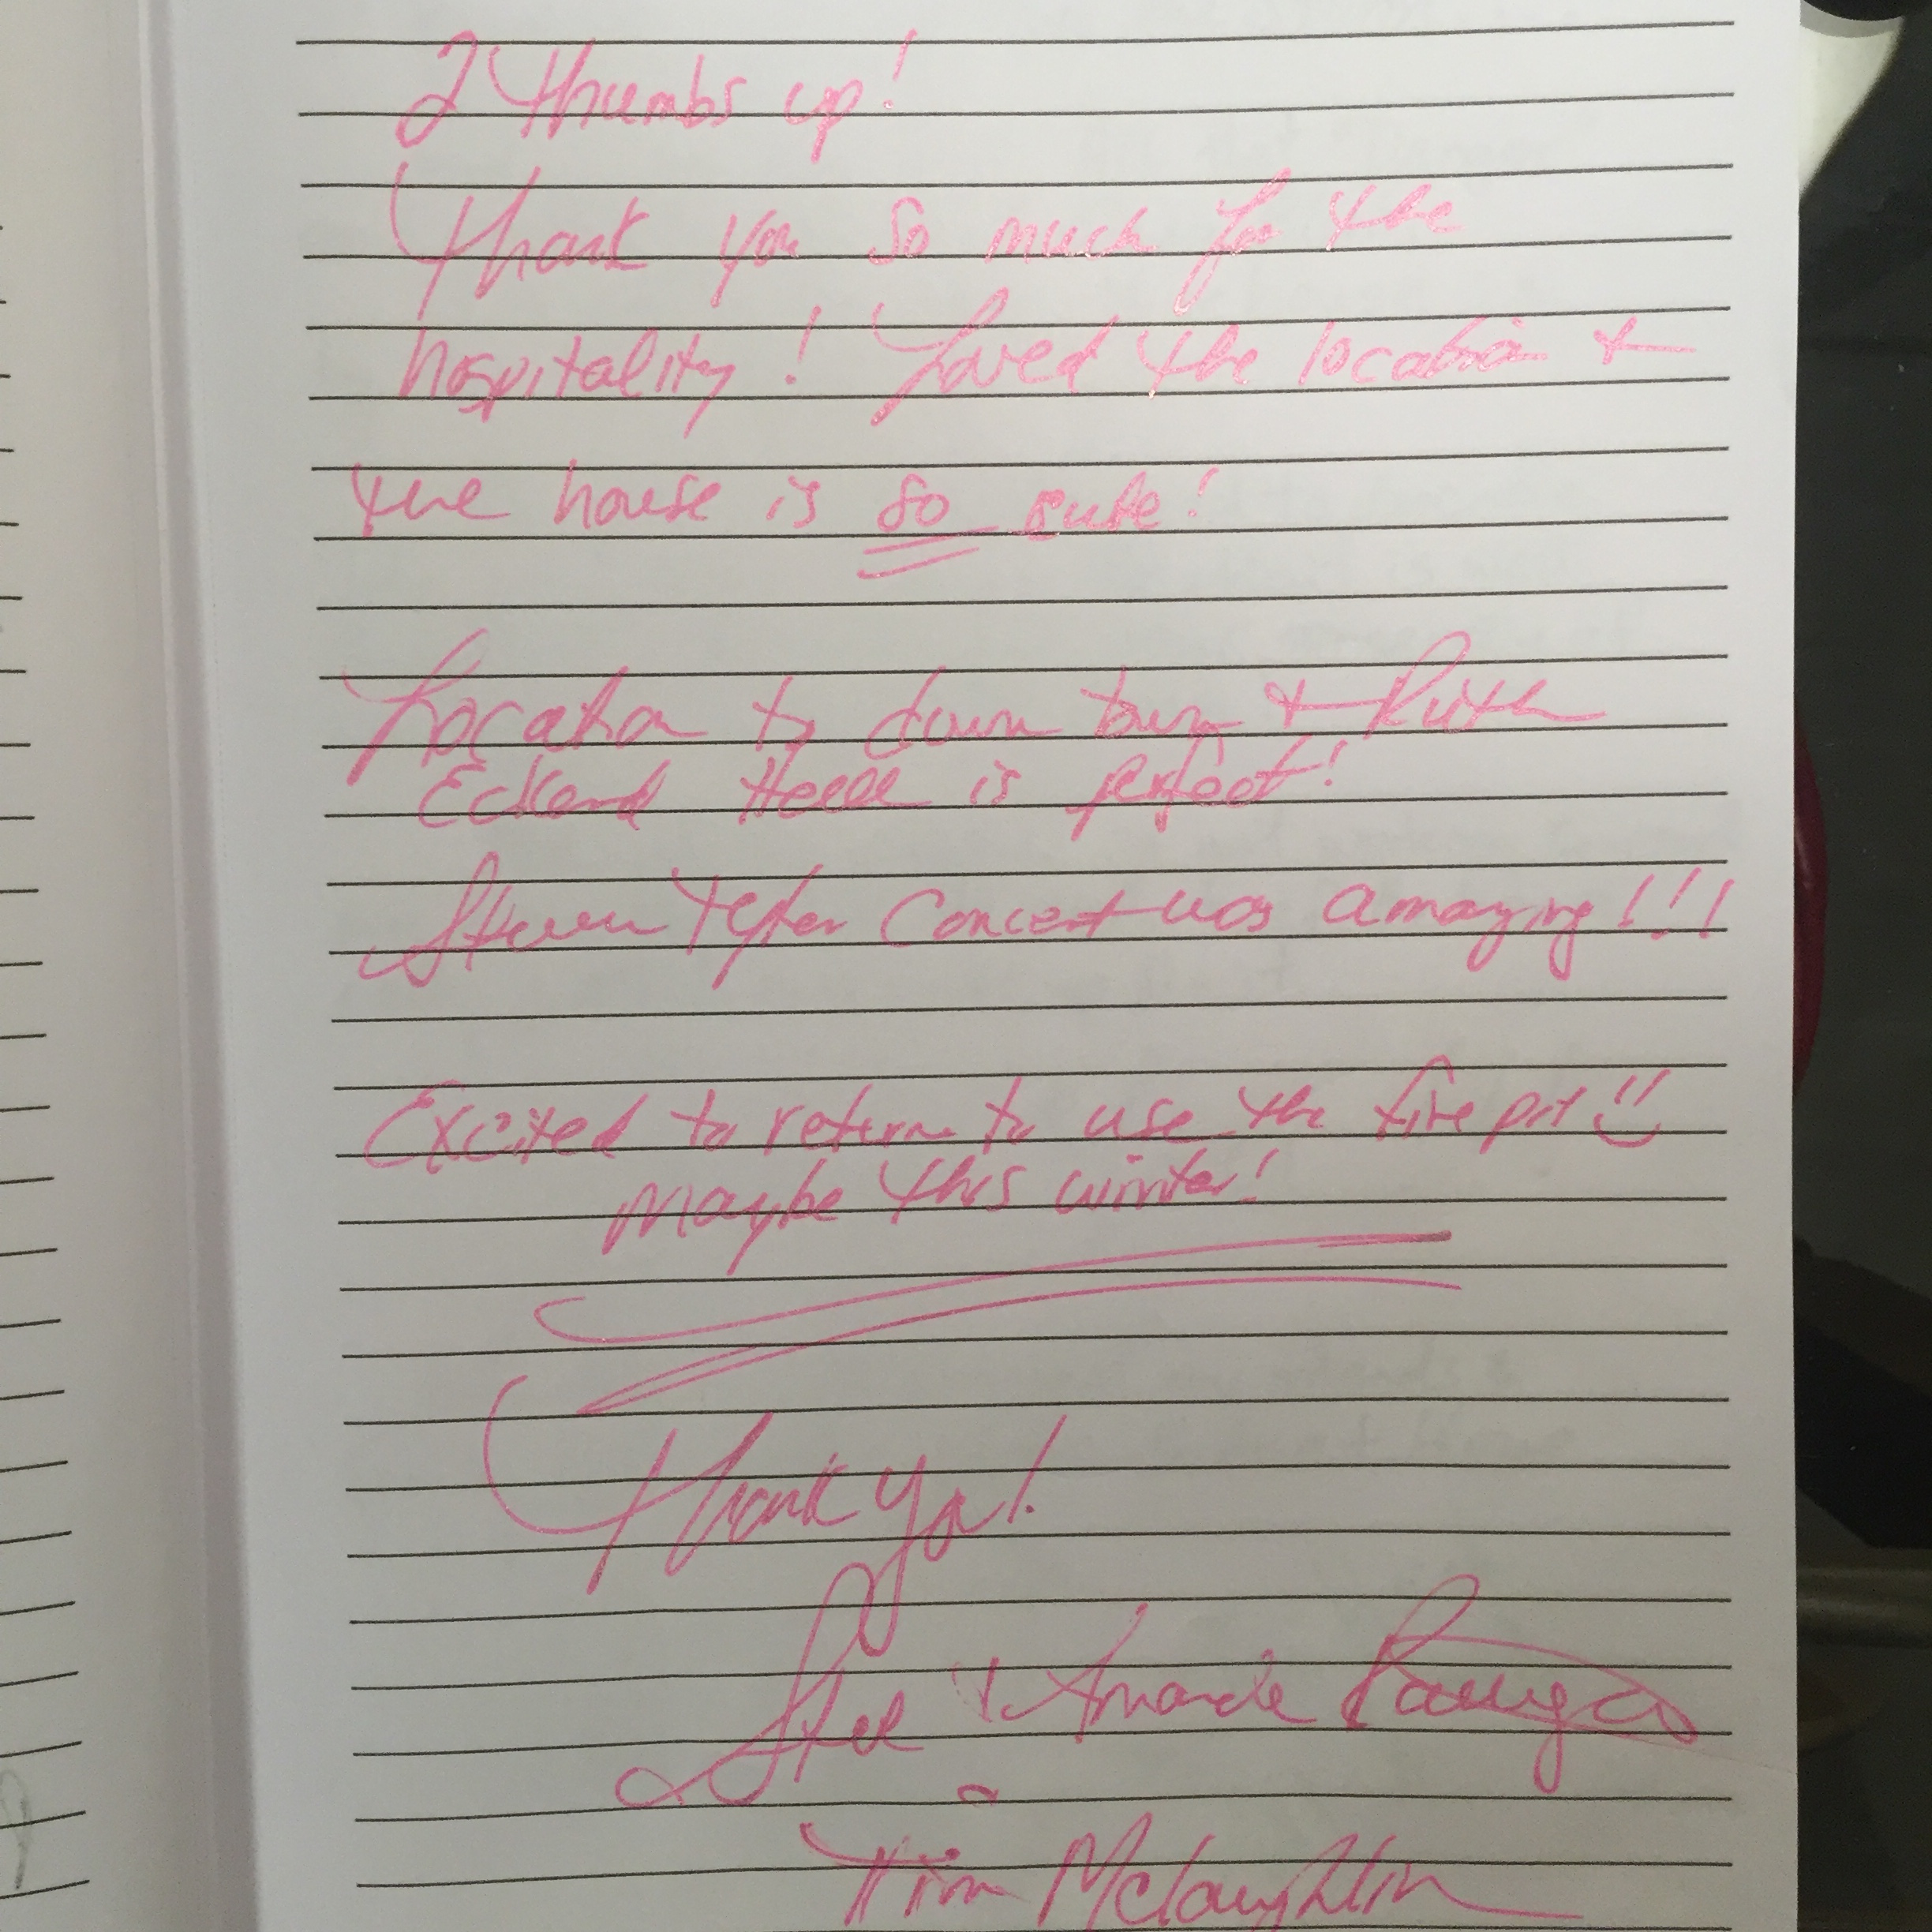 2 Thumbs up!
Thank you so much for the
hospitality! Loved the location &
the house is so cute!
Location to down town & Ruth
Eckerd Hall is perfect!
Steven Tyler Concert was amazing!!!
Excited to return to use the fire pit
maybe this winter!
Thank you!
& Amanda
Tim McLaughlin